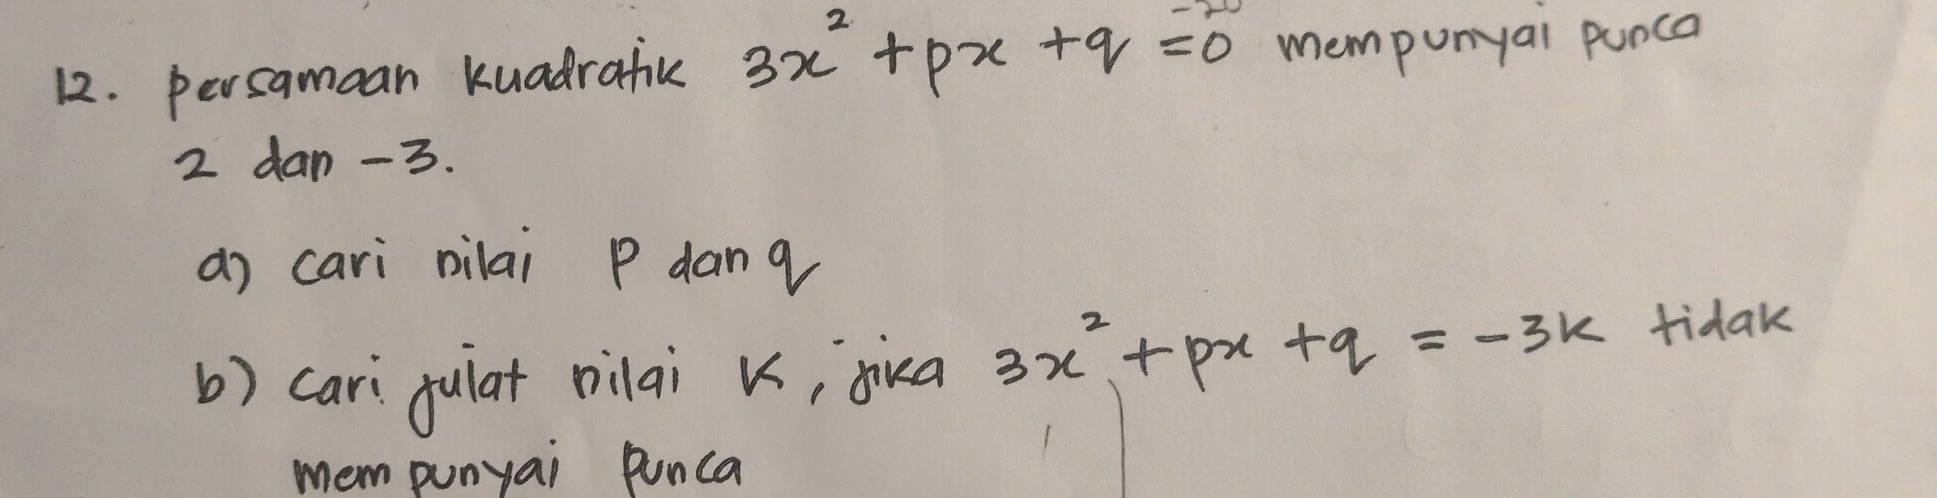 12. persamaan kuadratik 3x² + px + q = 0 mempunyai punca
2 dan -3.
a) cari nilai p dan q
b) cari julat nilai k, jika 3x² + px + q = -3k tidak
mempunyai punca